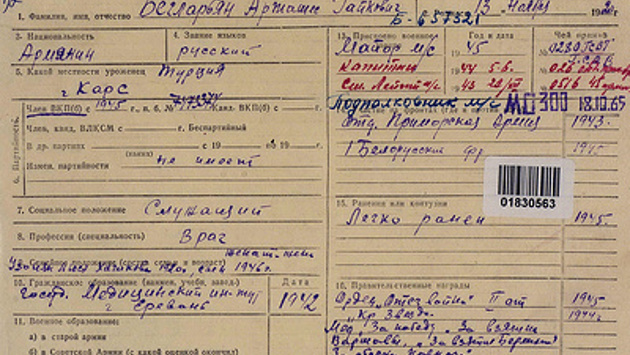 1. Фамилия, имя, отчество Бегларьян Арташес Гайкович
Б-657521
13 Ноября
3. Национальность
Армянин
4. Знание языков
русский
5. Какой местности уроженец Турция
г Карс
6. Партийность.
Член ВКП(б) с 1945 г., п. б. № Канд. ВКП(б) с
Член, канд. ВЛКСМ с Беспартийный
В др. партиях с 19 по 19 г.
(каких)
Измен. партийн. не имеет
7. Социальное положение Служащий
8. Профессия (специальность) Врач
Семейное положение (состав семьи и возраст) женат, жена
1946 г.
10. Гражданское образование (наимен. учебн. завед.)
Медицинский ин-тут
г Еревань
Дата
1942
11. Военное образование:
а) в старой армии
б) в Советской Армии (с какой оценкой окончил)
13. Присвоено военное
Год и дата
Чей приказ
Майор м/с 45 № 0230
Капитан 44 5.6.
Лейт м/с 43 20/VII 0516
Подполковник м/с МО 300 18.10.65
Отд. Приморская Армия 1943.
1 Белорусский фр 1945
01830563
15. Ранения или контузии
Легко ранен 1945.
16. Правительственные награды
Орден „Отеч войны" II ст 1945
„Кр Звезда 1944г
Мед „За победу", „За взятие
Варшавы", „За взятие Берлина"